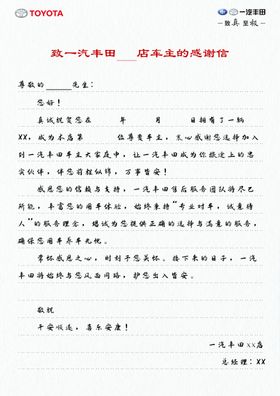 TOYOTA
一汽丰田
致真 至极
致一汽丰田___店车主的感谢信
尊敬的______先生：
您好！
真诚祝贺您在 年 月 日拥有了一辆
XX，成为本店第 位尊贵车主，衷心感谢您选择加入
到一汽丰田车主大家庭中，让一汽丰田成为你旅途上的忠
实伙伴，伴您前程似锦，万事皆安！
感恩您的信赖与支持，一汽丰田售后服务团队将尽己
所能，丰富您的用车体验，始终秉持“专业对车，诚意待
人”的服务理念，竭诚为您提供正确的选择与满意的服务，
确保您用车养车无忧。
常怀感恩之心，时刻予您关怀。接下来的日子，一汽
丰田将始终与您风雨同路，护您出入皆安。
敬祝
平安顺遂，喜乐安康！
一汽丰田XX店
总经理：XX